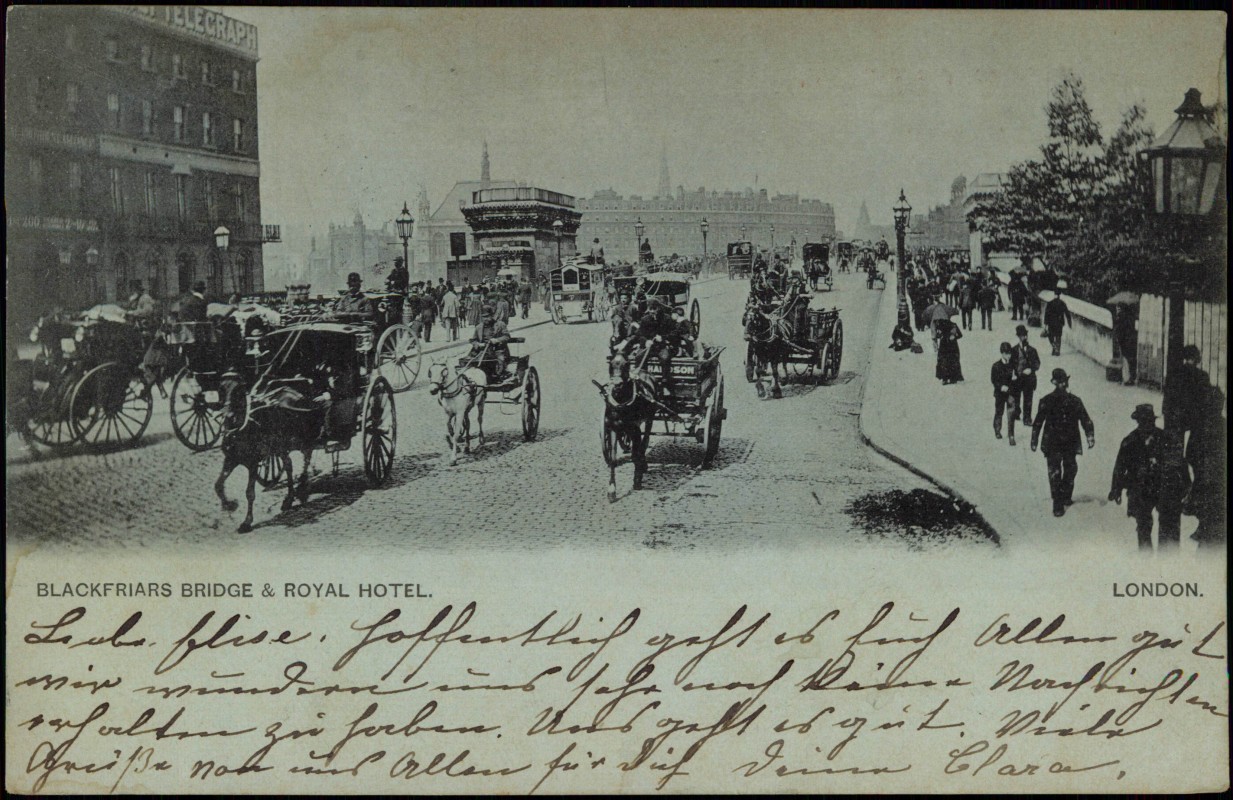 TELEGRAPH
HARRSON
BLACKFRIARS BRIDGE & ROYAL HOTEL.
LONDON.
Liebe Elise. Hoffentlich geht es Euch Allen gut
wir wundern uns sehr noch keine Nachrichten
erhalten zu haben. Uns geht es gut. Viele
Grüße von uns Allen für Dich Deine Clara.